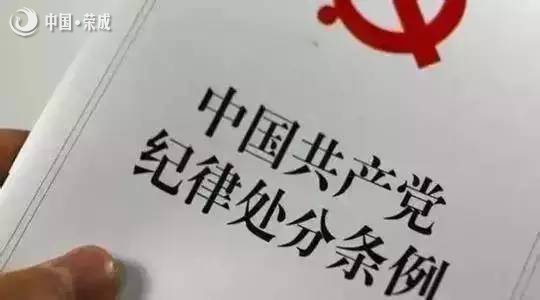 中国·荣成
中国共产党
纪律处分条例